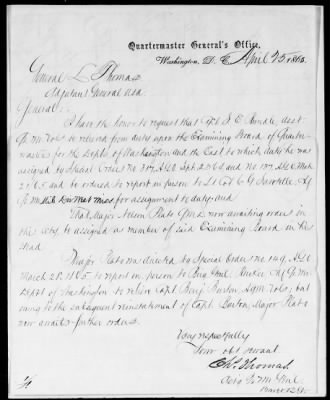 Quartermaster General's Office,
Washington, D. C. April 25 1865.
General L. Thomas
Adjutant General USA
General:
I have the honor to request that Capt
Qr Mr Vols be relieved from duty upon the Examining Board of Quarter-
masters for the Depts of Washington and the East to which duty he was
assigned by Special Orders No. 317, A.G.O Sept 23/64 and No 137 A.G.O Mch
21/65 and be ordered to report in person to Lt Col C G Sawtelle, Q
M for assignment to duty; and
That Major Platt Q.M.D. now awaiting orders in
this city, be assigned as member of said Examining Board in his
stead.
Major Platt was directed by Special Order No 149, A.G.O
March 28, 1865 to report in person to Brig Genl. Rucker Q M
Dept of Washington to relieve Capt Benj. Burton Vols; but
owing to the subsequent reinstatement of Capt. Burton, Major Platt
now awaits further orders.
Very respectfully
Your obt servant
Chs. Thomas
Actg Q M Genl